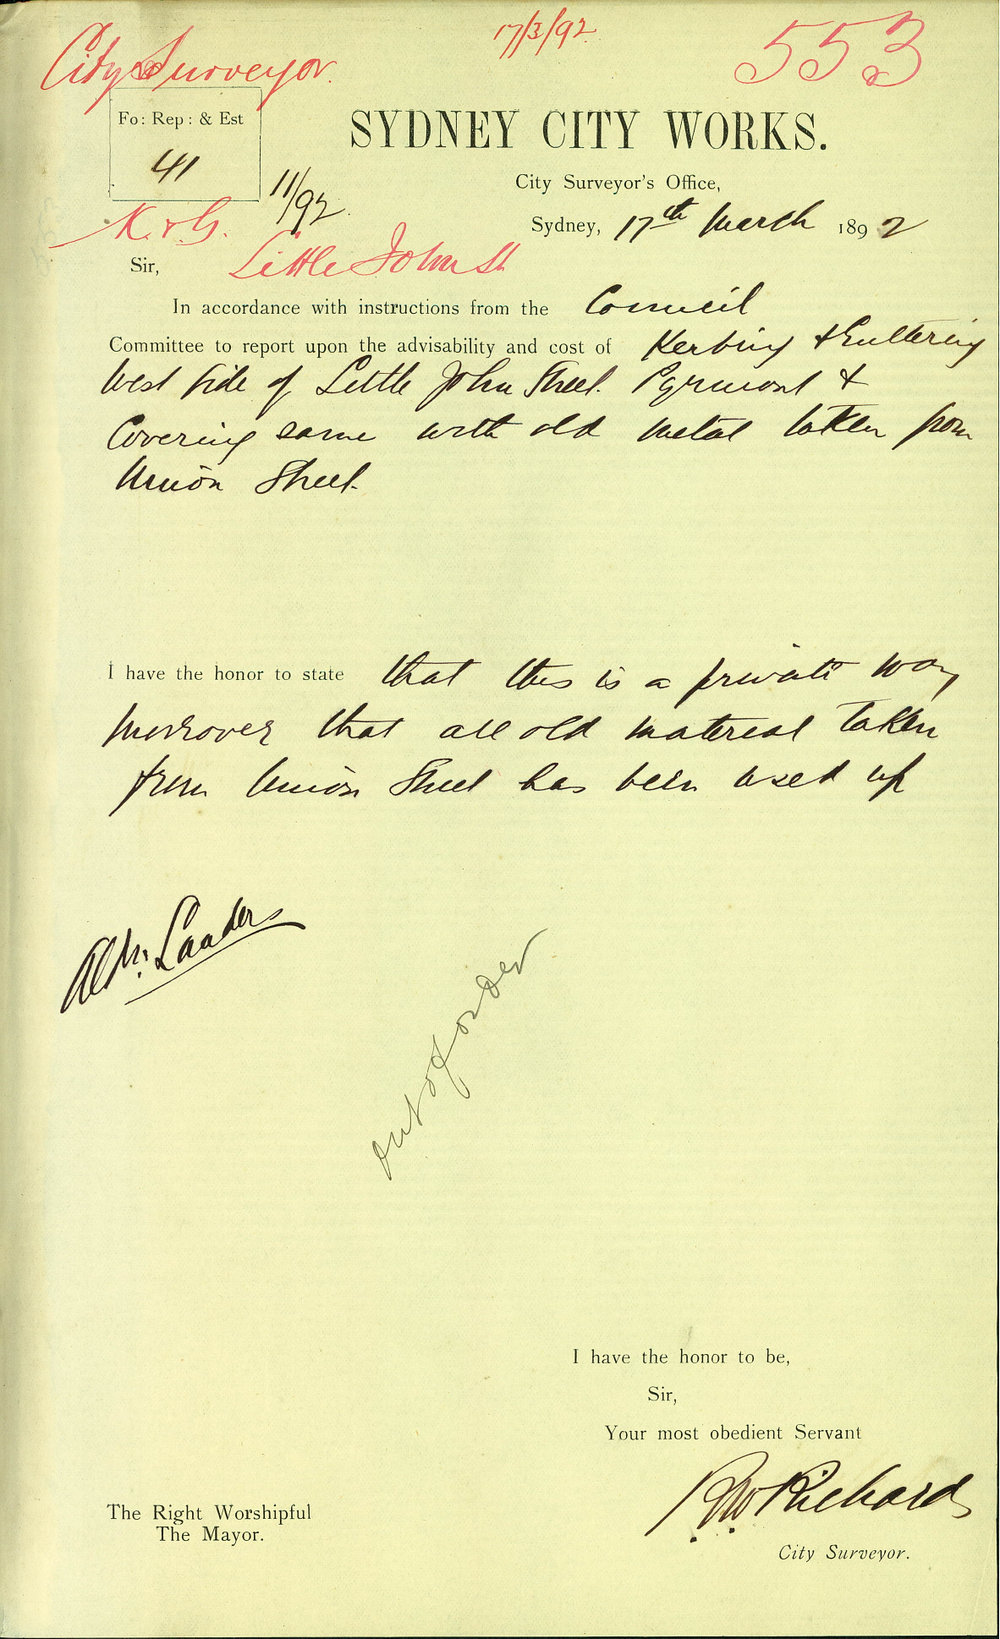 17/3/92
553
City Surveyor.
Fo: Rep: & Est
41
11/92
SYDNEY CITY WORKS.
City Surveyor's Office,
K. & G.
Sydney, 17th March 1892
Sir,
Little John St
In accordance with instructions from the Council
Committee to report upon the advisability and cost of Kerbing & Guttering
West side of Little John Street. Pyrmont &
Covering same with old metal taken from
Union Street.
I have the honor to state that this is a private way
moreover that all old material taken
from Union Street has been used up
Ald.
out of order
I have the honor to be,
Sir,
Your most obedient Servant
R W Richards
City Surveyor.
The Right Worshipful
The Mayor.